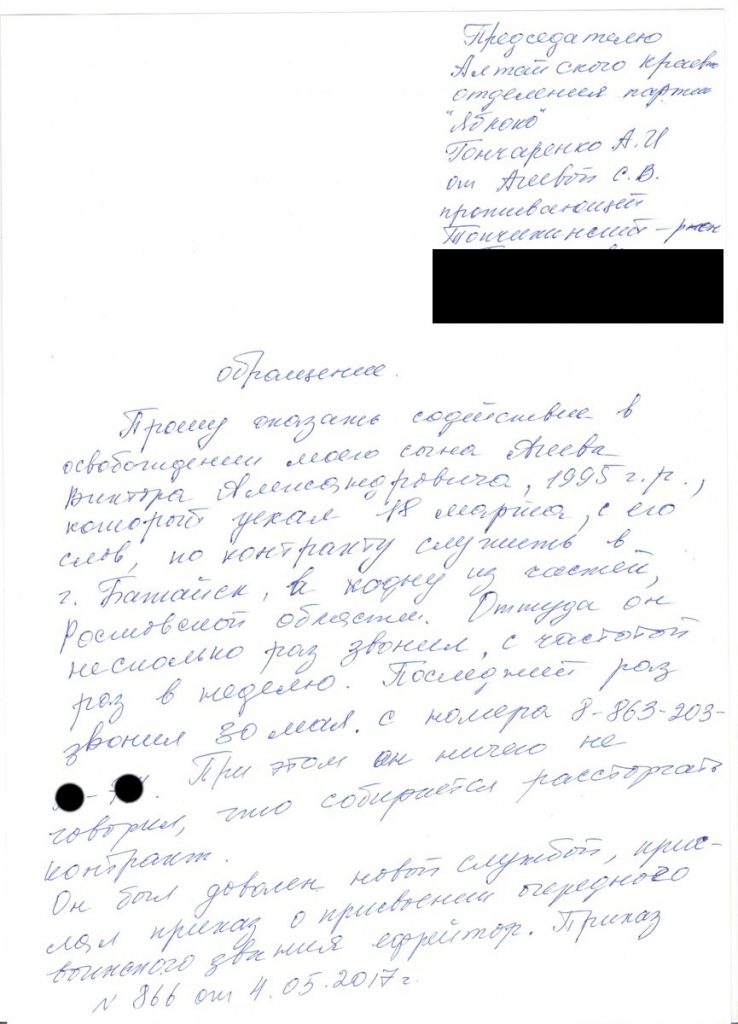 Председателю
Алтайского краев
отделения партии
"Яблоко"
Гончаренко А.И
от Агеевой С.В.
проживающей
Топчихинский р-он
обращение.
Прошу оказать содействие в
освобождении моего сына Агеева
Виктора Александровича, 1995 г.р.,
который уехал 18 марта, с его
слов, по контракту служить в
г. Батайск, в одну из частей,
Ростовской области. Оттуда он
несколько раз звонил, с частотой
раз в неделю. Последний раз
звонил 30 мая. с номера 8-863-203-
При этом он ничего не
говорил, что собирается расторгать
контракт.
Он был доволен новой службой, прис-
лал приказ о присвоении очередного
воинского звания ефрейтор. Приказ
N 866 от 4.05.2017г.